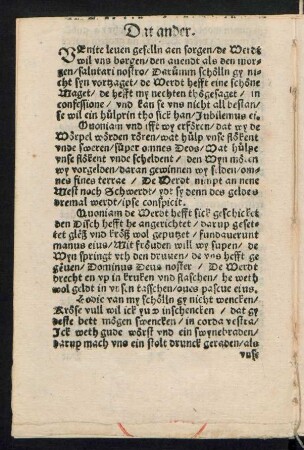 Dat ander.
VEnite leuen geselln aen sorgen/ de Werdt
wil vns borgen/ den auendt als den mor-
gen/ salutari nostro/ Darümm schölln gy ni-
cht syn vortzaget/ de Werdt hefft eine schöne
Maget/ de hefft my nechten thögesaget/ in
confessione/ vnd kan se vns nicht all bestan/
se wil ein hülprin tho sick han/ Jubilemus ei.
Quoniam vnd ifft wy erfören/ dat wy de
Wörpel wörden rören/ wat hülp vnse flökent
vnde sweren/ süper omnes Deos/ Wat hülpe
vnse flökent vnde scheldent/ den Wyn möten
wy vorgelden/ daran gewinnen wy selden/ om-
nes fines terrae/ De Werdt nimpt an nene
West noch Schwerdt/ ydt sy denn des geldes
dremal werdt/ ipse conspicit.
Quoniam de Werdt hefft sick geschicket
den Disch hefft he angerichtet/ darup gesettet
gleß vnd kröß wol geputzet/ fundauerunt
manus eius/ Mit fröuden will wy supen/ de
Wyn springt vth den druuen/ de vns hefft ge
geuen/ Dominus Deus noster/ De Werdt
drecht en vp in kruken vnd flaschen/ he weth
wol geldt in vnsen tasschen/ oues pascue eius,
Hodie van my schölln gy nicht wencken/
Kröse vull wil ick yuw inschencken/ dat gy
beste bett mögen swencken/ in corda vestra/
Ick weth gude wörst vnd ein swynebraden/
darup mach vns ein stolt drunck geraden/ als
vnse